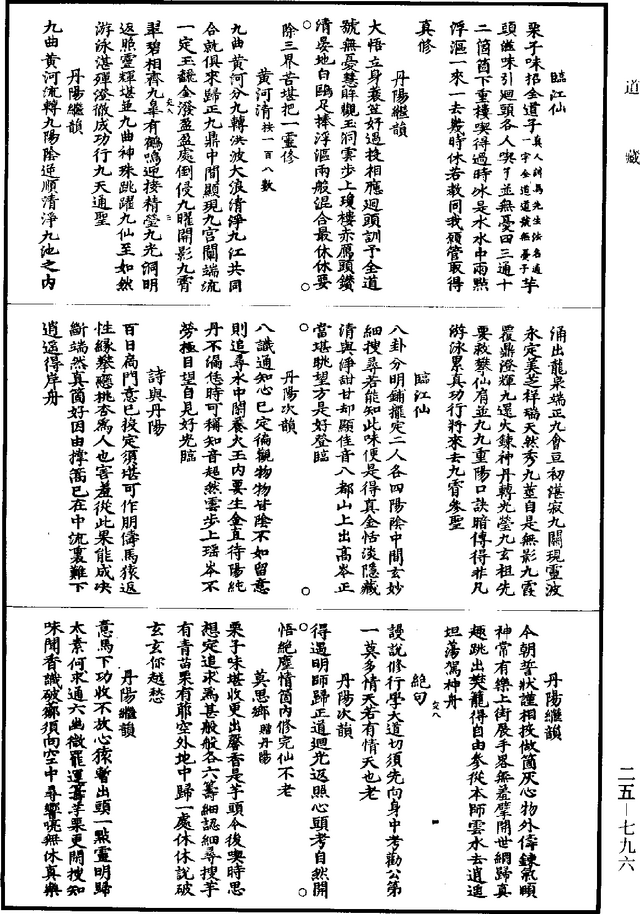 道藏
臨江仙
栗子味招全道子真人訓馬先生法名通一字全道道號無憂子芋
頭滋味引迴頭各人喫了並無憂四三通十
二箇箇下重樓喫得過時冰是水水中兩點
浮漚一來一去幾時休若教同我領管取得
真修
丹陽繼韻
大悟立身蓑笠好過投相應迴頭訓予全道
號無憂慧眸觀玉洞雲步上瓊樓赤鴈頭鑽
清晏地白鷗足捧浮漚兩般混合最休休要
除三界苦堪把一靈修
黃河清按一百八數
九曲黃河分九轉洪波大浪清淨九江共同
合就俱來歸正九鼎中間顯現九宮闡端流
一定玉巖金潑盈盈處倒侵九曜開影九霄
翠碧相齊九皋有鶴鳴迎接精瑩九光洞明
返照靈輝堪並九曲神珠跳躍九仙至如然
游泳湛殫澄徹成功行九天通聖
丹陽繼韻
九曲黃河流轉九陽陰逆順清淨九池之內
涌出龍泉端正九會豆初湛寂九關現靈波
永定美芝祥瑞天然秀九莖自是無影九霞
覆鼎澄輝九還火鍊神丹轉光瑩九玄祖先
要救攀仙肩並九九重陽口訣暗傳得非凡
游泳累真功行將來去九霄參聖
臨江仙
八卦分明鋪擺定二人各四陽陰中間玄妙
細搜尋若能知此味便是得真金恬淡隱藏
清與淨甜甘却顯佳音八都山上出高岑正
當堪眺望方是好登臨
丹陽次韻
八識通知心已定徧觀物物皆陰不如留意
則追尋水中閑養火王內要生金直待陽純
丹不漏恁時可稱知音超然雲步上瑶岑不
勞極目望自見好光臨
詩與丹陽
百日扃門意已投定須堪可作朋儔馬猿返
性緣攀㦬桃杏為人也害羞從此果能成決
斷端然真箇好因由撑篙已在中流裏難下
逍遥得岸舟
丹陽繼韻
今朝誓狀謹相投做箇灰心物外儔鍊氣頤
神常有樂上街展手畧無羞擘開世網歸真
趣跳出樊籠得自由參從本師雲水去逍遥
坦蕩駕神舟
絶句
謾説修行學大道切須先向身中考勸公第
一莫多情天若有情天也老
丹陽次韻
得遇明師歸正道迴光返照心頭考自然開
悟絶塵情箇內修完仙不老
莫思鄉贈丹陽
栗子味堪收更出馨香是芋頭今後喫時思
想定追求為甚般般各六籌細認細尋搜芋
有青苗栗有鄒空外地中歸一處休休説破
玄玄你越愁
丹陽繼韻
意馬下功收不放心猿暫出頭一點靈明歸
太素何求通六幽微罷運籌芋栗更閑搜知
味聞香識破鄒須向空中尋響喨無休真樂
二五—七九六